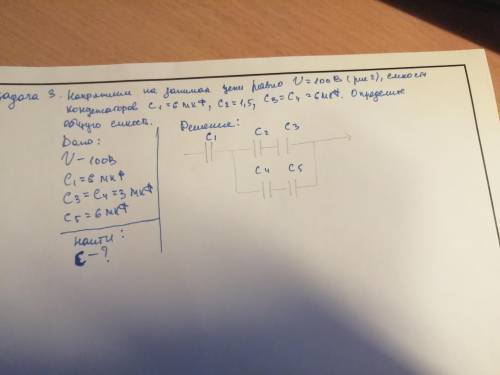 Задача 3. Напряжение на зажимах цепи равно U=100В (рис2), емкость
конденсаторов C1=6 мкФ, C2=1,5, C3=C4=6мкФ. Определите
общую емкость.
Дано:
U-100В
C1=6 мкФ
C3=C4=3 мкФ
C5=6мкФ
Найти:
C-?
Решение:
C1
C2 C3
C4 C5